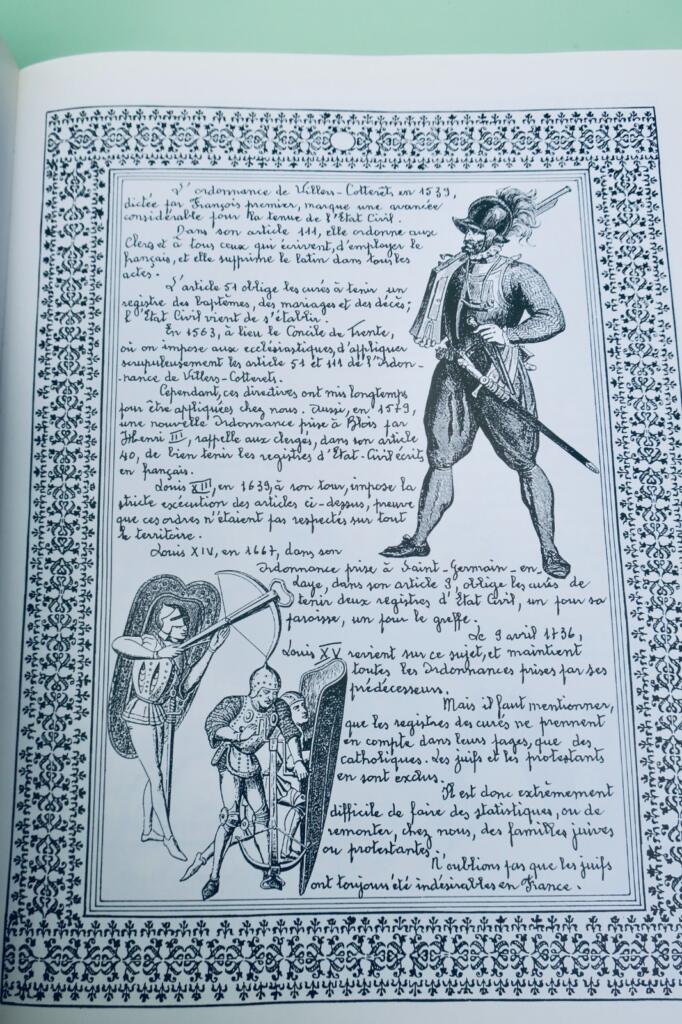 L'ordonnance de Villers-Cotterêts, en 1539,
dictée par François premier, marque une avancée
considérable pour la tenue de l'État Civil.
Dans son article 111, elle ordonne aux
Clercs et à tous ceux qui écrivent, d'employer le
français, et elle supprime le latin dans tous les
actes.
L'article 51 oblige les curés à tenir un
registre des baptêmes, des mariages et des décès;
l'État Civil vient de s'établir.
En 1563, à lieu le Concile de Trente,
où on impose aux ecclésiastiques, d'appliquer
scrupuleusement les article 51 et 111 de l'Ordon-
-nance de Villers-Cotterets.
Cependant, ces directives ont mis longtemps
pour être appliquées chez nous. Aussi, en 1579,
une nouvelle Ordonnance prise à Blois par
Henri III, rappelle aux clergés, dans son article
40, de bien tenir les registres d'État-Civil écrits
en français.
Louis XIII, en 1639, à son tour, impose la
stricte exécution des articles ci-dessus, preuve
que ces ordres n'étaient pas respectés sur tout
le territoire.
Louis XIV, en 1667, dans son
Ordonnance prise à Saint-Germain-en-
Laye, dans son article 9, oblige les curés de
tenir deux registres d'État Civil, un pour sa
paroisse, un pour le greffe.
Le 9 avril 1736,
Louis XV revient sur ce sujet, et maintient
toutes les Ordonnances prises par ses
prédecesseurs.
Mais il faut mentionner,
que les registres des curés ne prennent
en compte dans leurs pages, que des
catholiques. Les juifs et les protestants
en sont exclus.
Il est donc extrêmement
difficile de faire des statistiques, ou de
remonter, chez nous, des familles juives
ou protestantes.
N'oublions pas que les juifs
ont toujours été indésirables en France.